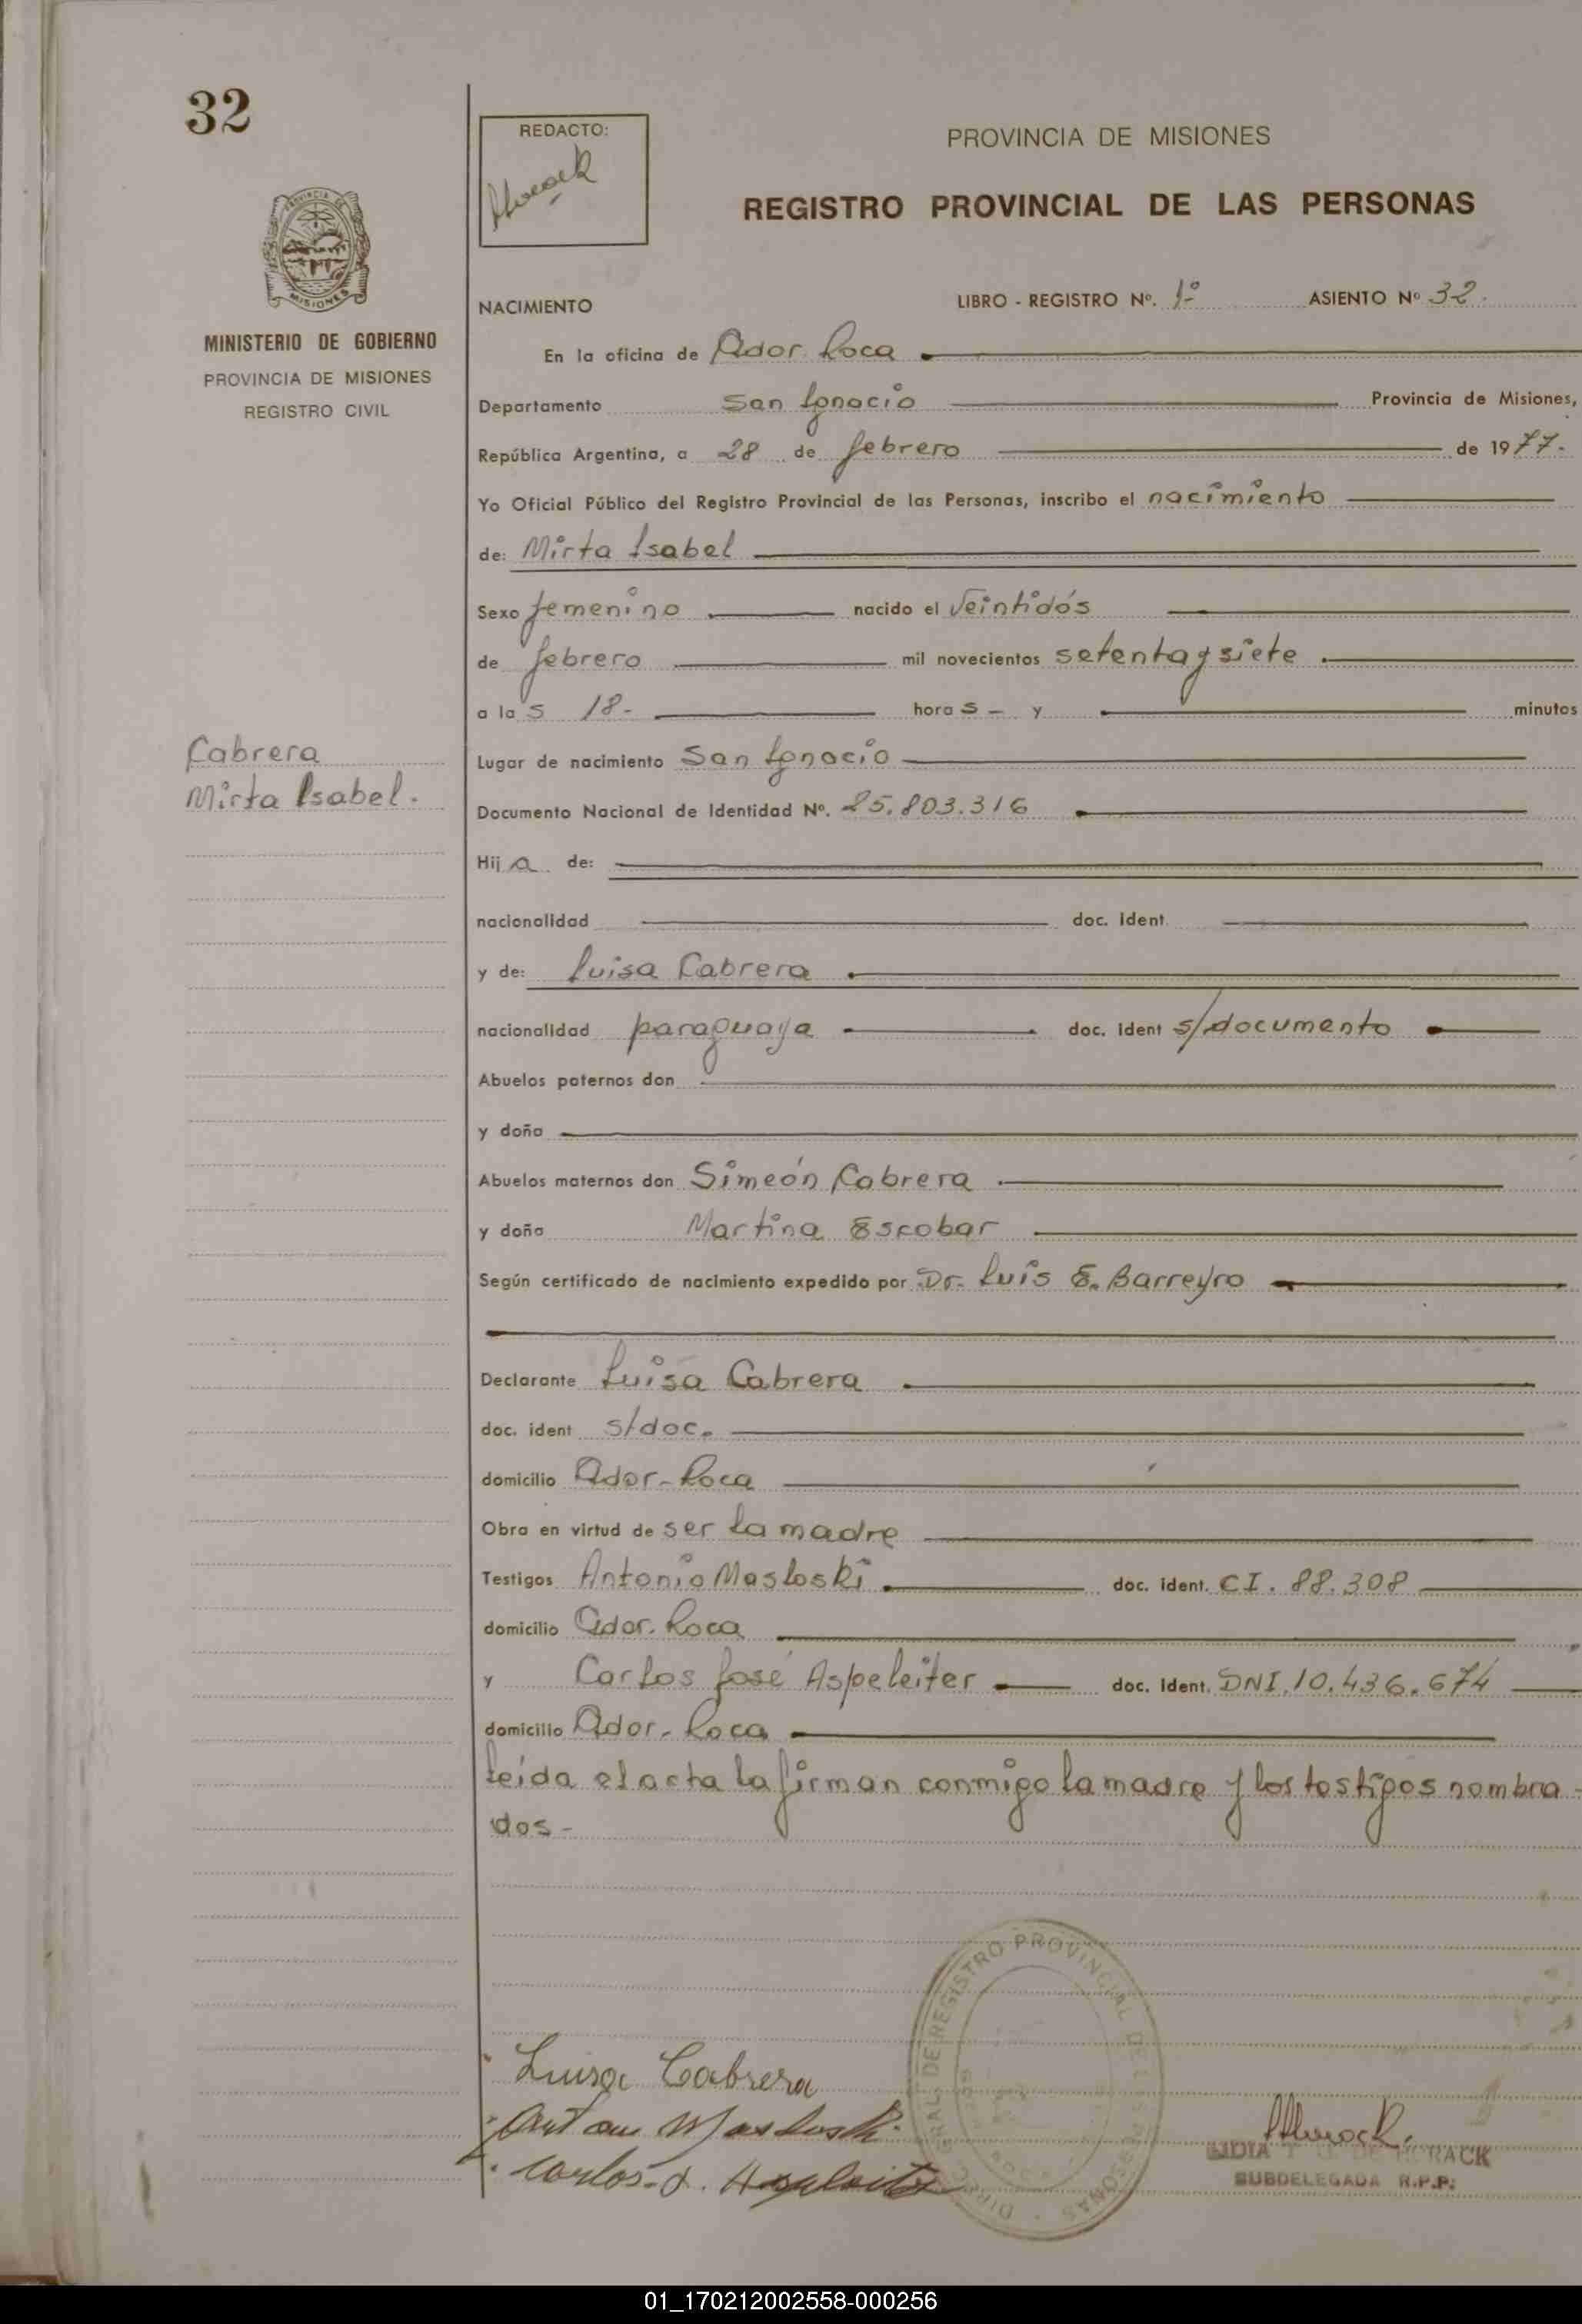 32
REDACTO:
PROVINCIA DE MISIONES
REGISTRO PROVINCIAL DE LAS PERSONAS
MISIONES
MINISTERIO DE GOBIERNO
PROVINCIA DE MISIONES
REGISTRO CIVIL
NACIMIENTO LIBRO - REGISTRO Nº. 1º ASIENTO Nº 32.
En la oficina de Ador. Roca
Departamento San Ignacio Provincia de Misiones,
República Argentina, a 28 de febrero de 1977.
Yo Oficial Público del Registro Provincial de las Personas, inscribo el nacimiento
de: Mirta Isabel
Sexo femenino nacido el Veintidós
de febrero mil novecientos setenta y siete
a las 18- horas - y minutos
Cabrera
Mirta Isabel.
Lugar de nacimiento San Ignacio
Documento Nacional de Identidad Nº. 25.803.316
Hija de:
nacionalidad doc. ident.
y de: Luisa Cabrera
nacionalidad paraguaya doc. ident s/documento
Abuelos paternos don
y doña
Abuelos maternos don Simeón Cabrera
y doña Martina Escobar
Según certificado de nacimiento expedido por Dr. Luis E. Barreyro
Declarante Luisa Cabrera
doc. ident s/doc.
domicilio Ador. Roca
Obra en virtud de ser la madre
Testigos Antonio Masloski doc. ident. CI. 88.308
domicilio Ador. Roca
y Carlos José Aspeleiter doc. ident. DNI. 10.436.674
domicilio Ador. Roca
leída el acta la firman conmigo la madre y los testigos nombra-
dos-
REGISTRO PROVINCIAL DE LAS PERSONAS
Luisa Cabrera
LIDIA DE HORACK
SUBDELEGADA R.P.P.
01_170212002558-000256